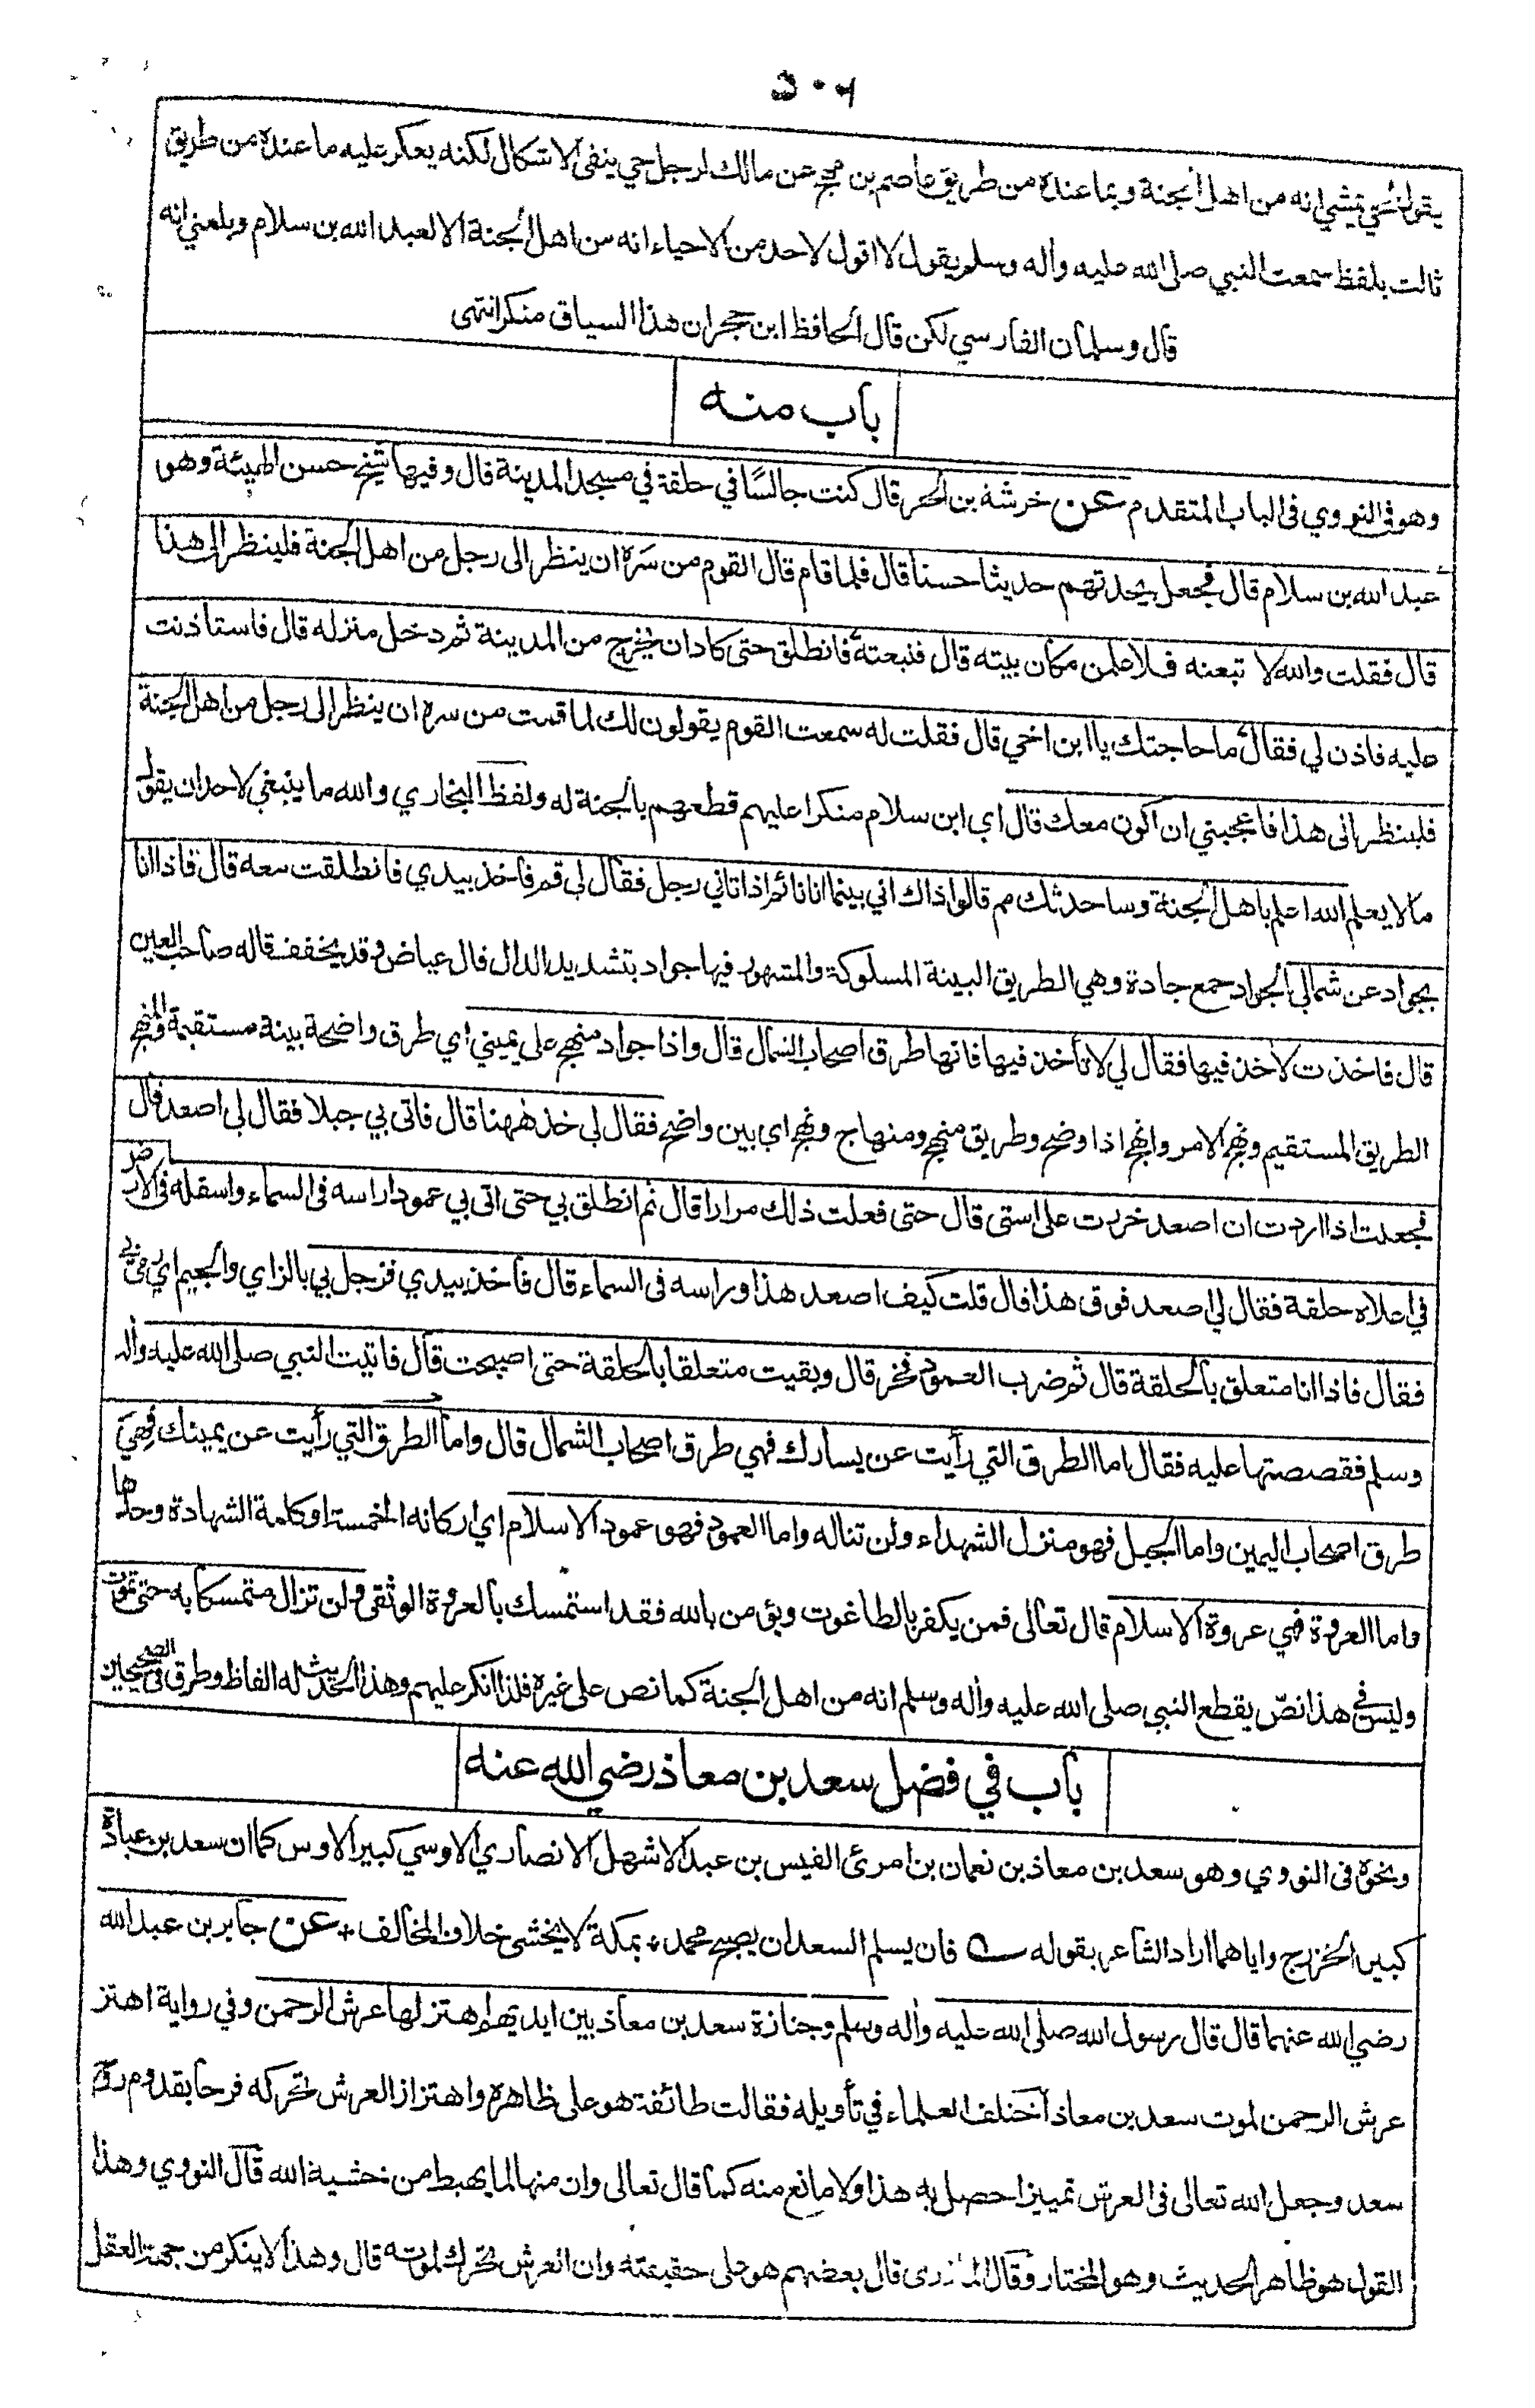 ٥٠٦
يقول لحي يمشي انه من اهل الجنة وبما عنده من طريق عاصم بن مهجع عن مالك لرجل حي ينفى الاشكال لكنه يعكر عليه ما عنده من طريق
ثالث بلفظ سمعت النبي صلى الله عليه واله وسلم يقول لا اقول لاحد من الاحياء انه من اهل الجنة الا لعبد الله بن سلام وبلغني انه
قال وسلمان الفارسي لكن قال الحافظ ابن حجر ان هذا السياق منكر انتهى
باب منه
وهو في النووي فى الباب المتقدم عن خرشة بن الحر قال كنت جالسًا في حلقة في مسجد المدينة قال وفيها شيخ حسن الهيئة وهو
عبد الله بن سلام قال فجعل يحدثهم حديثا حسنا قال فلما قام قال القوم من سَره ان ينظر الى رجل من اهل الجنة فلينظر الى هذا
قال فقلت والله لا تبعنه فلاعلمن مكان بيته قال فتبعته فانطلق حتى كاد ان يخرج من المدينة ثم دخل منزله قال فاستاذنت
عليه فاذن لي فقال ما حاجتك يا ابن اخي قال فقلت له سمعت القوم يقولون لك لما قمت من سره ان ينظر الى رجل من اهل الجنة
فلينظر الى هذا فاعجبني ان اكون معك قال اي ابن سلام منكرا عليهم قطعهم بالجنة له ولفظ البخاري والله ما ينبغي لاحد ان يقول
ما لا يعلم الله اعلم باهل الجنة وساحدثك مم قالوا ذاك اني بينما انا نائم اذ اتاني رجل فقال لي قم فاخذ بيدي فانطلقت معه قال فاذا انا
بجواد عن شمالي الجواد جمع جادة وهي الطريق البينة المسلوكة والمشهور فيها جواد بتشديد الدال قال عياض وقد يخفف قاله صاحب العين
قال فاخذت لاخذ فيها فقال لي لا تأخذ فيها فانها طرق اصحاب الشمال قال واذا جواد منهج على يميني اي طرق واضحة بينة مستقيمة والمنهج
الطريق المستقيم ونهج الامر وانهج اذا وضح وطريق منهج ومنهاج ونهج اي بين واضح فقال لي خذ ههنا قال فاتى بي جبلا فقال لي اصعد قال
فجعلت اذا اردت ان اصعد خررت على استى قال حتى فعلت ذلك مرارا قال ثم انطلق بي حتى اتى بي عمودا راسه في السماء واسفله في الارض
في اعلاه حلقة فقال لي اصعد فوق هذا قال قلت كيف اصعد هذا وراسه فى السماء قال فاخذ بيدي فزجل بي بالزاي والجيم اي رمى بي
فقال فاذا انا متعلق بالحلقة قال ثم ضرب العمود فخر قال وبقيت متعلقا بالحلقة حتى اصبحت قال فاتيت النبي صلى الله عليه واله
وسلم فقصصتها عليه فقال اما الطرق التي رأيت عن يسارك فهي طرق اصحاب الشمال قال واما الطرق التي رأيت عن يمينك فهي
طرق اصحاب اليمين واما الجبل فهو منزل الشهداء ولن تناله واما العمود فهو عمود الاسلام اي اركانه الخمسة او كلمة الشهادة وحدها
واما العروة فهي عروة الاسلام قال تعالى فمن يكفر بالطاغوت ويؤمن بالله فقد استمسك بالعروة الوثقى ولن تزال متمسكا به حتى تموت
وليس في هذا نصّ يقطع النبي صلى الله عليه واله وسلم انه من اهل الجنة كما نص على غيره فلذا انكر عليهم وهذا الحديث له الفاظ وطرق في الصحيحين
باب في فضل سعد بن معاذ رضي الله عنه
ونحوه فى النووي وهو سعد بن معاذ بن نعمان بن امرئ القيس بن عبد الاشهل الانصاري الاوسي كبير الاوس كما ان سعد بن عبادة
كبير الخزرج واياهما اراد الشاعر بقوله فان يسلم السعدان يصبح محمد * بمكة لا يخشى خلاف المخالف * عن جابر بن عبد الله
رضي الله عنهما قال قال رسول الله صلى الله عليه واله وسلم وجنازة سعد بن معاذ بين ايديهم اهتز لها عرش الرحمن وفي رواية اهتز
عرش الرحمن لموت سعد بن معاذ اختلف العلماء في تأويله فقالت طائفة هو على ظاهره واهتزاز العرش تحركه فرحا بقدوم روح
سعد وجعل الله تعالى فى العرش تمييزا حصل به هذا ولا مانع منه كما قال تعالى وان منها لما يهبط من خشية الله قال النووي وهذا
القول هو ظاهر الحديث وهو المختار وقال المازرى قال بعضهم هو على حقيقته وان العرش تحرك لموته قال وهذا لا ينكر من جهة العقل